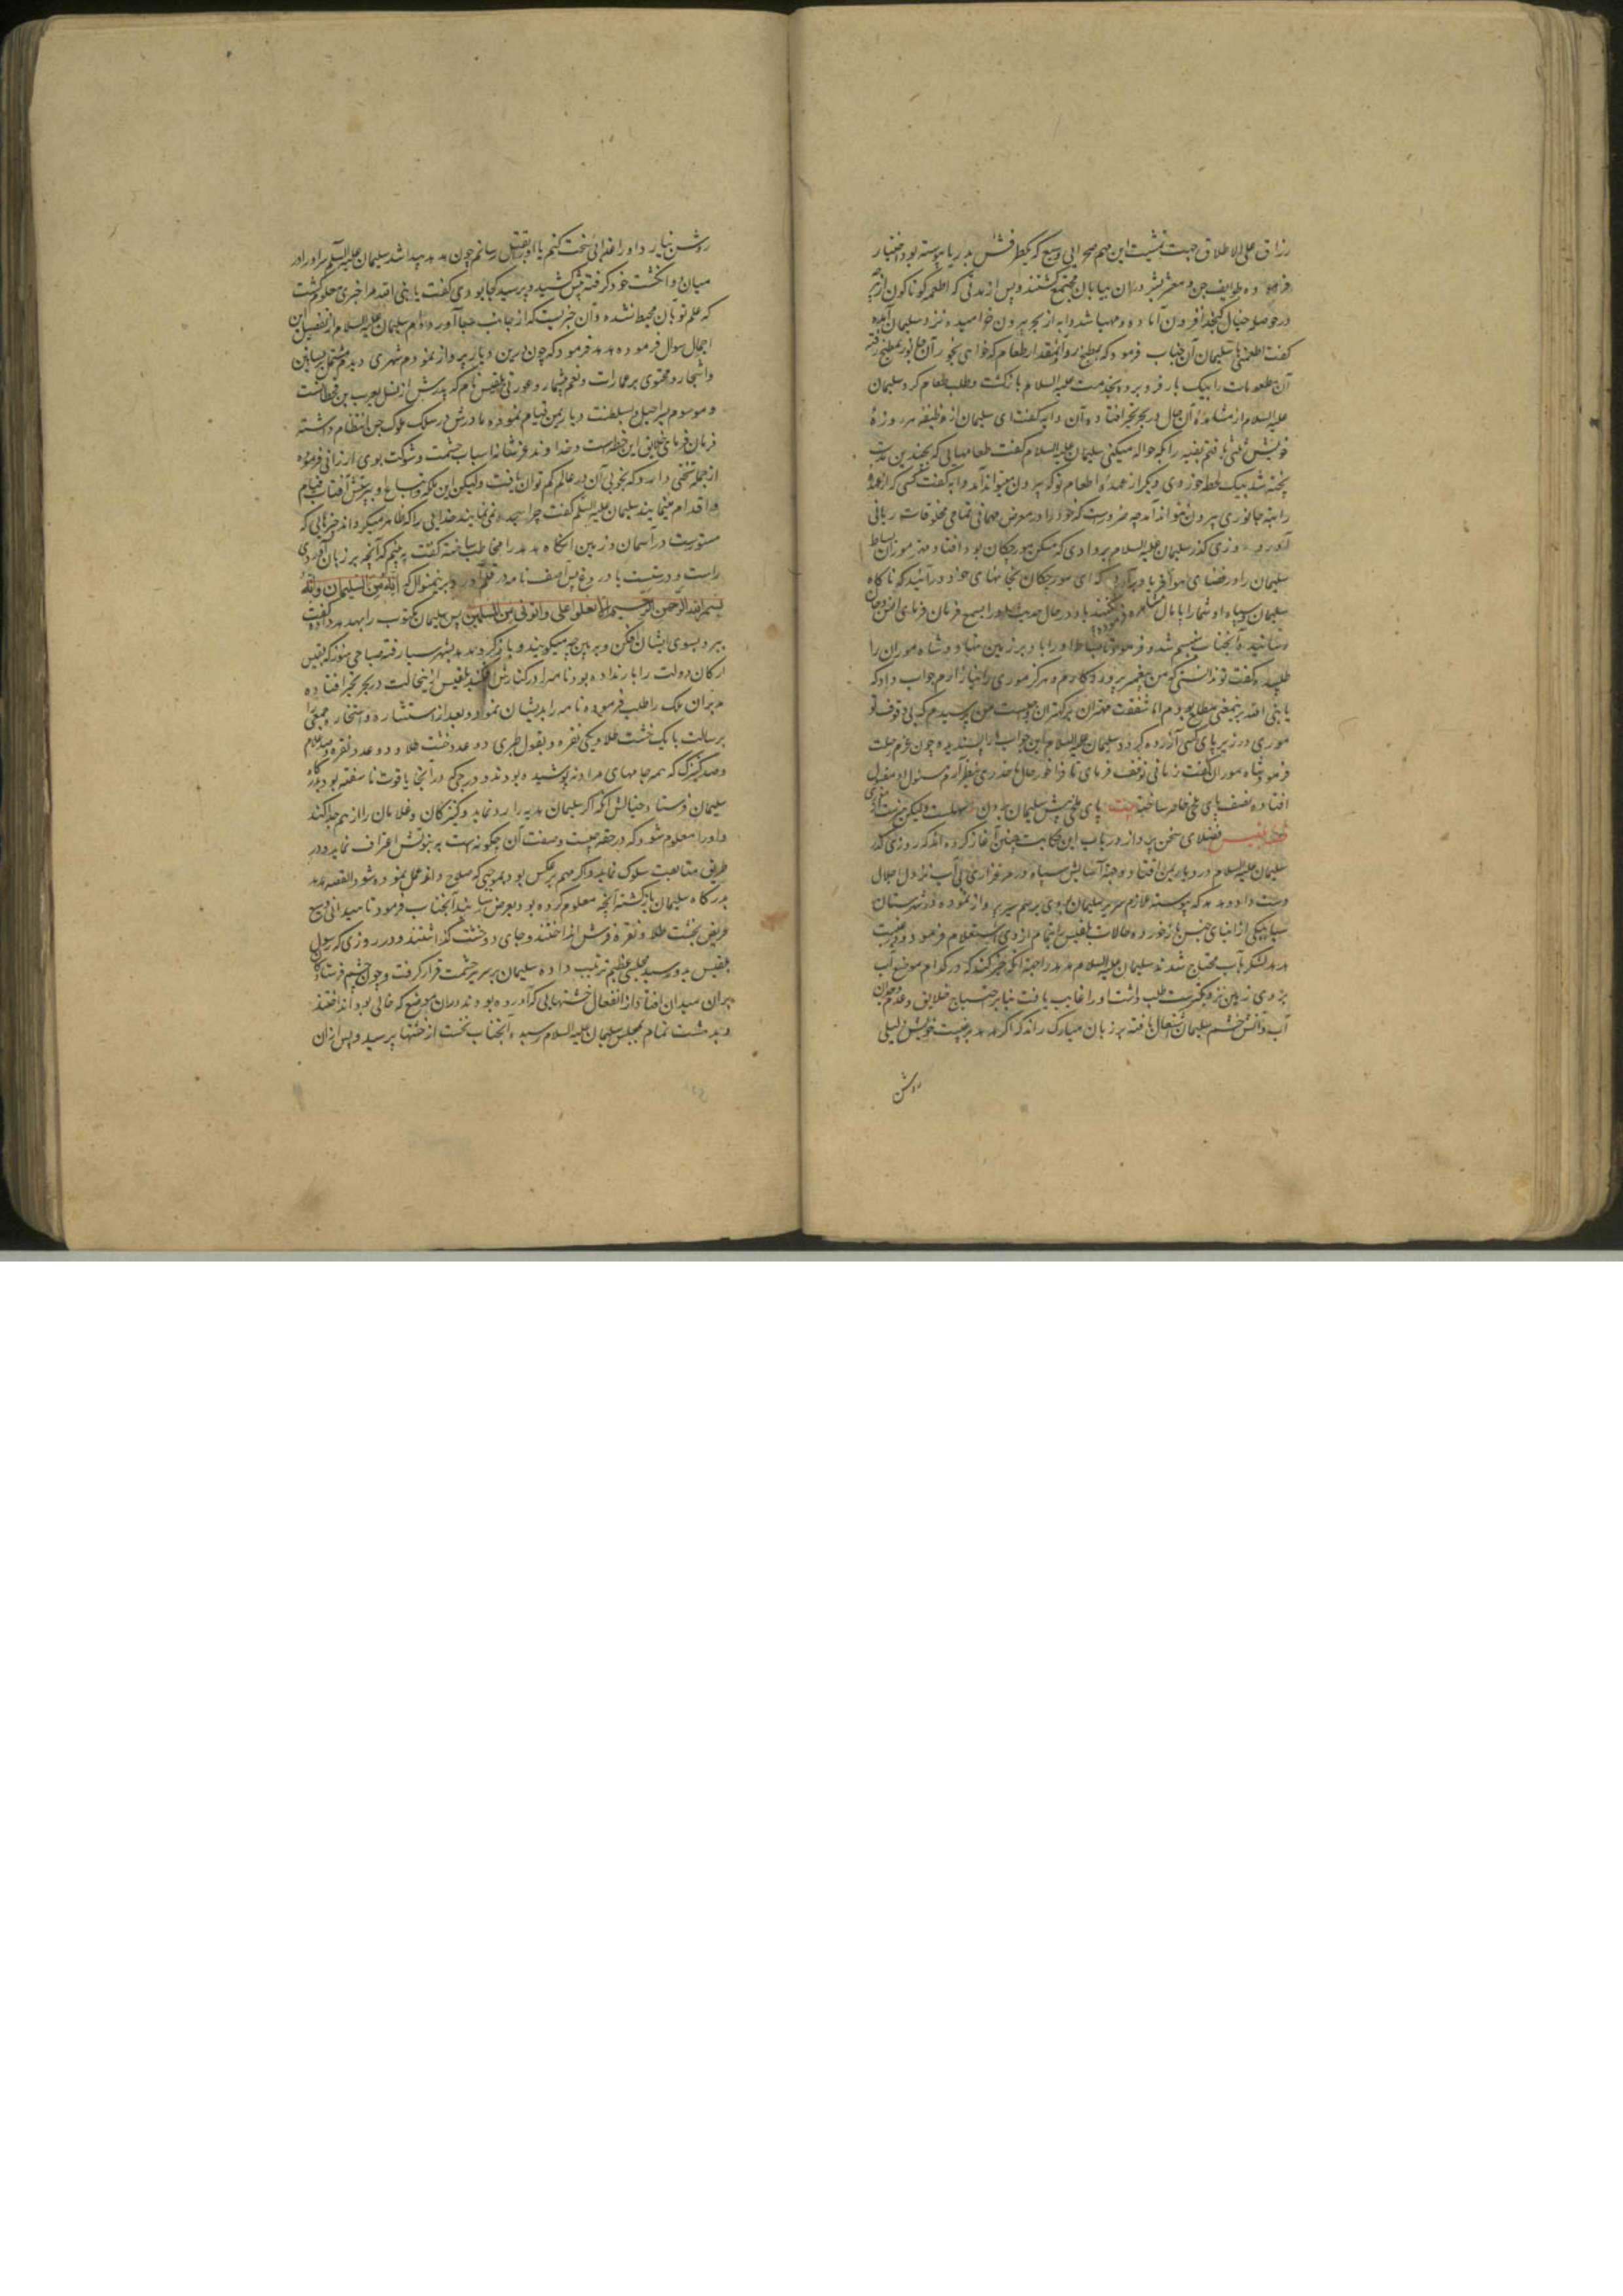 رزاق علی الاطلاق جهت تمشیت این مهم صحرایی وسیع که یکطرفش بدریا پیوسته بود اختیار
فرموده طوایف جن و معشر بشر در ان بیابان مجتمع گشتند و پس از مدتی که اطعمه کوناکون از
در حوصله خیال کنجد افزون آماده و مهیا شد دابه از بحر بیرون خرامیده نزد سلیمان آمده
گفت اطعمنی یا سلیمان آن جناب فرمود که بمطبخ رو آنمقدار طعام که خواهی بخور آن جانور بمطبخ رفته
آن مطعومات را بیک بار فرو برده بخدمت علیه السلام بازگشت و طلب طعام کرد سلیمان
علیه السلام از مشاهدهٔ آن حال در بحر تحیر افتاده آن دابه گفت ای سلیمان از وظیفه هر روزهٔ
خویش ثلثی یافتم بقیه را بکه حواله میکنی سلیمان علیه السلام گفت طعامهایی که بچندین مدت
پخته شد بیک لحظه خوردی دیگر از عهدهٔ اطعام تو که بیرون میتواند آمد دابه گفت کسی که از عهدهٔ
راتبه جانوری بیرون نتواند آمد چه ضرورست که خود را در معرض مهمانی تمامی مخلوقات ربانی
آورد روزی گذر سلیمان علیه السلام بر وادی که مسکن مورچگان بود افتاد مهتر موران بساط
سلیمان را در فضای هوا فریاد برآورد که ای مورچگان بخانهای خود درآئید که ناگاه
سلیمان و سپاه او شما را پامال نکنند باد در حال حدیث مور را بسمع فرمان فرمای انس و جان
رسانید آنجناب متبسم شده فرمود تا بساط او را باد بر زمین نهاد و شاه موران را
طلبیده گفت تو ندانستی که من پیغمبر پروردگارم و هرگز موری را نیازارم جواب داد که
یا نبی الله بر اینمعنی مطلع بودم اما شفقت مهتران بر کهتران واجبست من ترسیدم که بی وقوف تو
موری در زیر پای کسی آزرده گردد سلیمان علیه السلام این جواب را پسندیده چون عزم رحلت
فرمود شاه موران گفت زمانی توقف فرمای تا فراخور حال ما حضری بنظر آرم مسئول او مقبول
افتاده نصف پای ملخی حاضر ساخت بیت پای ملخی پیش سلیمان بردن سهلست ولیکن هنرست از موری
قصه بلقیس فضلای سخن پرداز در باب این حکایت چنین آغاز کرده اند که روزی گذر
سلیمان علیه السلام در دیار یمن افتاد و جهة آسایش سپاه در مرغزاری بی آب نزول اجلال
دست داد و هدهد که پیوسته ملازم سریر سلیمان بودی برسم سیر پرواز نموده در شهرستان
سبا بیکی از ابنای جنس باز خورده حالات بلقیس را بتمام از وی استعلام فرمود و در غیبت
هدهد لشکر بآب محتاج شدند سلیمان علیه السلام هدهد را جهة آنکه خبر کند که در کدام موضع آب
بروی زمین نزدیکترست طلب داشت او را غایب یافت بنابر احتیاج خلایق و عدم وجدان
آب و آتش خشم سلیمان اشتعال یافته بر زبان مبارک راند که اگر هدهد بر غیبت خویش دلیلی
روشن
روشن نیارد او را عذابی سخت کنم یا او را بقتل رسانم چون هدهد پیدا شد سلیمان علیه السلام سر او را در
میان دو انگشت خود گرفته پیش کشید و پرسید کجا بودی گفت یا نبی الله مرا خبری معلوم گشت
که علم تو بآن محیط نشده و آن خبریست که از جانب سبا آورده ام سلیمان علیه السلام از تفصیل این
اجمال سوال فرموده هدهد فرمود که چون درین دیار پرواز نمودم شهری دیدم مشتمل بر بساتین
و اشجار و محتوی بر عمارات و نعم بیشمار و عورتی بلقیس نام که پدرش از نسل یعرب بن قحطانست
و موسوم بشراحیل و بسلطنت دیار یمن قیام نموده و مادرش در سلک ملوک جن انتظام داشته
فرمان فرمای خلایق این خطه است و خداوند عز شانه اسباب حشمت و شوکت بوی ارزانی فرموده
از جمله تختی دارد که بخوبی آن در عالم کم توان یافت ولیکن این ملکه و اتباع او بپرستش آفتاب قیام
و اقدام مینمایند سلیمان علیه السلم گفت چرا سجده نمی نمایند خدایی را که ظاهر میگرداند چیزهایی که
مستورست در آسمان و زمین آنگاه هدهد را مخاطب ساخته گفت ببینم که آنچه بر زبان آوردی
راست و درستست یا دروغ پس آصف نامه در قلم آورد برینمنوال که انه من سلیمان و انه
بسم الله الرحمن الرحیم الا تعلوا علی و اتونی مسلمین پس سلیمان مکتوب را بهدهد داده گفت
ببر و بسوی ایشان افکن و ببین چه میگویند و باز گرد هدهد بشهر سبا رفته صباحی هنوز که بلقیس
ارکان دولت را بار نداده بود نامه را در کنارش افکند بلقیس از ینحالت در بحر تحیر افتاده
مدبران ملک را طلب فرموده نامه را بدیشان نمود و بعد از استشاره و استخاره جمعی را
برسالت با یک خشت طلا و یکی نقره و بقول طبری دو عدد خشت طلا و دو عدد نقره و صد غلام
و صد کنیزک که همه جامهای مردانه پوشیده بودند و درجی که در آنجا یاقوت ناسفته بود بدرگاه
سلیمان فرستاد و خیالش آنکه اگر سلیمان هدیه را رد نماید و کنیزکان و غلامان را از هم جدا کند
و او را معلوم شود که در حقه چیست و صفت آن چگونه است به نبوتش اعتراف نماید و در
طریق متابعت سلوک نماید و اگر مهم بر عکس بود بموجبی که صلاح داند عمل نموده شود القصه هدهد
بدرگاه سلیمان بازگشته آنچه معلوم کرده بود بعرض رسانید آنجناب فرمود تا میدانی وسیع
عریض بخشت طلا و نقره فرش انداختند و جای دو خشت گذاشتند و در روزی که رسول
بلقیس بدو رسید مجلسی عظیم ترتیب داده سلیمان بر سریر حشمت قرار گرفت و چون چشم فرستادگان
بر ان میدان افتاد از انفعال خشتهایی که آورده بودند در ان موضع که خالی بود انداختند
و بدهشت تمام بمجلس سلیمان علیه السلام رسیدند آنجناب نخست از خشتها پرسید و پس از ان